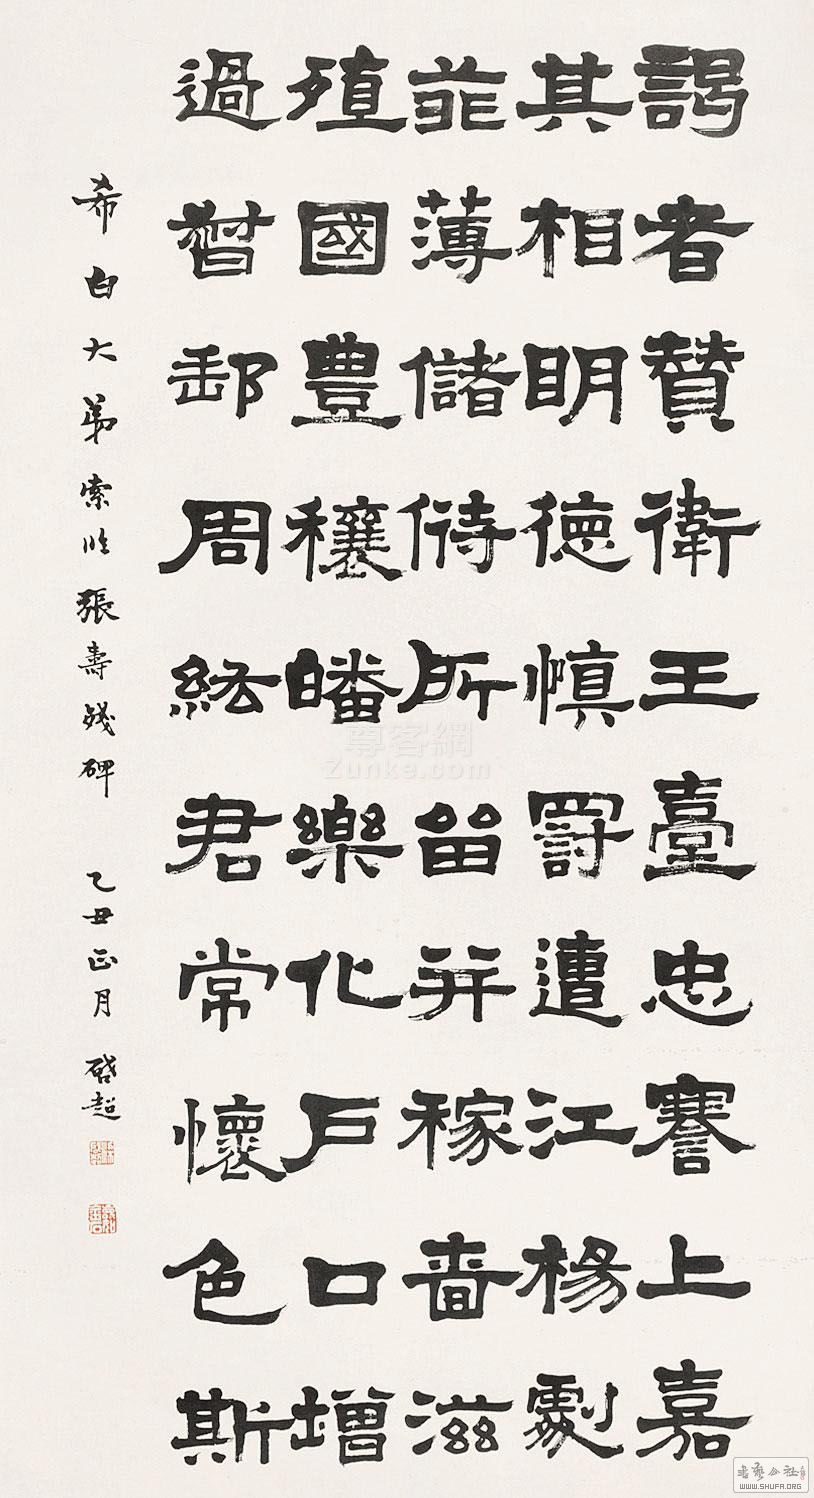 謁者贊衛王臺忠謇上嘉
其相明德慎罰遭江楊劇
菲薄儲偫所留并稼嗇滋
殖國豊穰皤樂化戶口增
過督郵周紘君常懷色斯
希白大弟索临張壽殘碑 乙丑正月 啓超
尊客網
Zunke.com
書藝公社
WWW.SHUFA.ORG